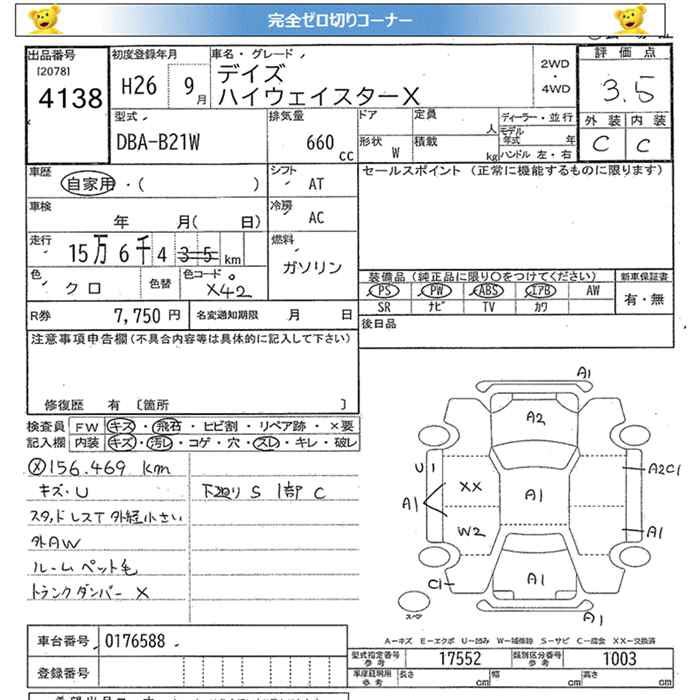 完全ゼロ切りコーナー
出品番号
[2078]
4138
初度登録年月
H26 9月
車名・グレード
デイズ
ハイウェイスターX
2WD
・
4WD
評価点
3.5
外装 内装
C C
型式
DBA-B21W
排気量
660 cc
ドア
形状 W
定員 人
積載 kg
ディーラー・並行
モデル年式 年
ハンドル 左・右
車歴
自家用・( )
シフト
AT
セールスポイント (正常に機能するものに限ります)
車検
年 月( 日)
冷房
AC
走行
15万 6千 4 3 5 km
燃料
ガソリン
色
クロ
色替
色コード
X42
装備品(純正品に限り〇をつけてください)
PS PW ABS エアB AW
SR ナビ TV カワ
新車保証書
有・無
R券 7,750 円
名変通知期限 月 日
後日品
注意事項申告欄(不具合内容等は具体的に記入して下さい)
修復歴 有 [箇所 ]
検査員記入欄
FW キズ・飛石・ヒビ割・リペア跡・×要
内装 キズ・汚レ・コゲ・穴・スレ・キレ・破レ
156.469 km
キズ・U
下廻り S 1部 C
スタッドレスT 外径小さい
外AW
ルームペット毛
トランクダンパー X
A1
A2
U1
XX
A1
A1
A2C1
W2
A1
C1
A1
スペア
A1
A－キズ E－エクボ U－凹み W－補修跡 S－サビ C－腐食 XX－交換済
車台番号 0176588
型式指定番号 参考 17552
類別区分番号 参考 1003
登録番号
車庫証明用 参考 長さ cm 幅 cm 高さ cm